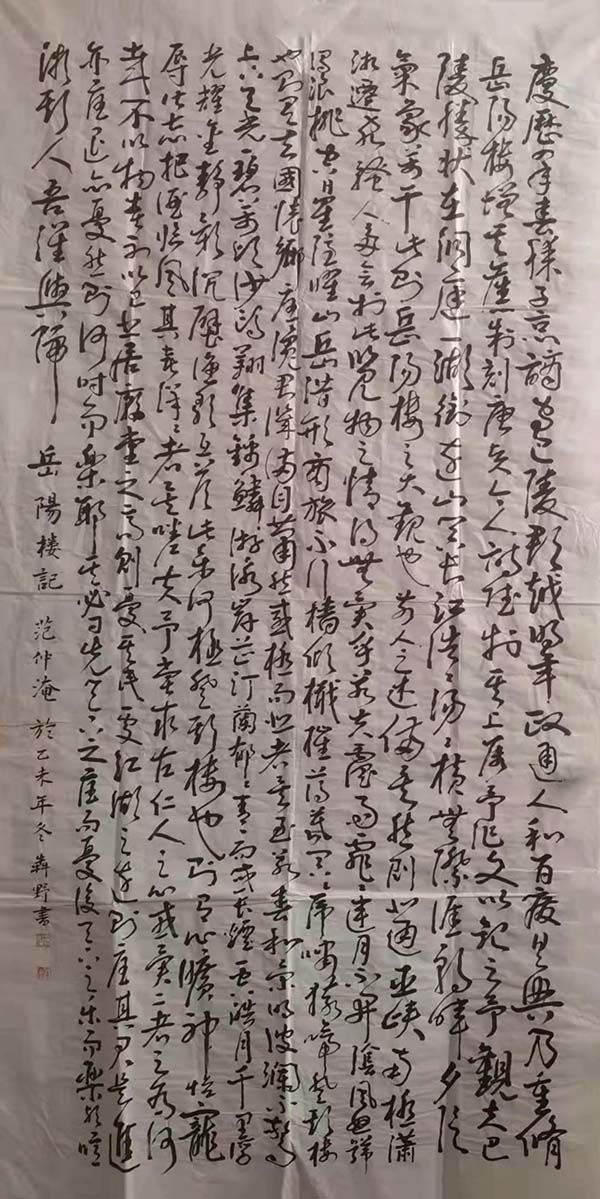 慶歷四年春滕子京謫守巴陵郡越明年政通人和百廢具興乃重脩
岳陽樓增其舊制刻唐賢今人詩賦於其上屬予作文以記之予觀夫巴
陵勝狀在洞庭一湖銜遠山吞長江浩浩湯湯橫無際涯朝暉夕陰
氣象萬千此則岳陽樓之大觀也前人之述備矣然則北通巫峽南極瀟
湘遷客騷人多會於此覽物之情得無異乎若夫霪雨霏霏連月不開陰風怒號
濁浪排空日星隱曜山岳潛形商旅不行檣傾檝摧薄暮冥冥虎嘯猿啼登斯樓
也則有去國懷鄉憂讒畏譏滿目蕭然感極而悲者矣至若春和景明波瀾不驚
上下天光一碧萬頃沙鷗翔集錦鱗游泳岸芷汀蘭郁郁青青而或長煙一空皓月千里浮
光耀金靜影沉璧漁歌互答此樂何極登斯樓也則有心曠神怡寵
辱皆忘把酒臨風其喜洋洋者矣嗟夫予嘗求古仁人之心或異二者之為何
哉不以物喜不以己悲居廟堂之高則憂其民處江湖之遠則憂其君是進
亦憂退亦憂然則何時而樂耶其必曰先天下之憂而憂後天下之樂而樂歟噫
微斯人吾誰與歸 岳陽樓記 范仲淹 於乙未年冬犇野書